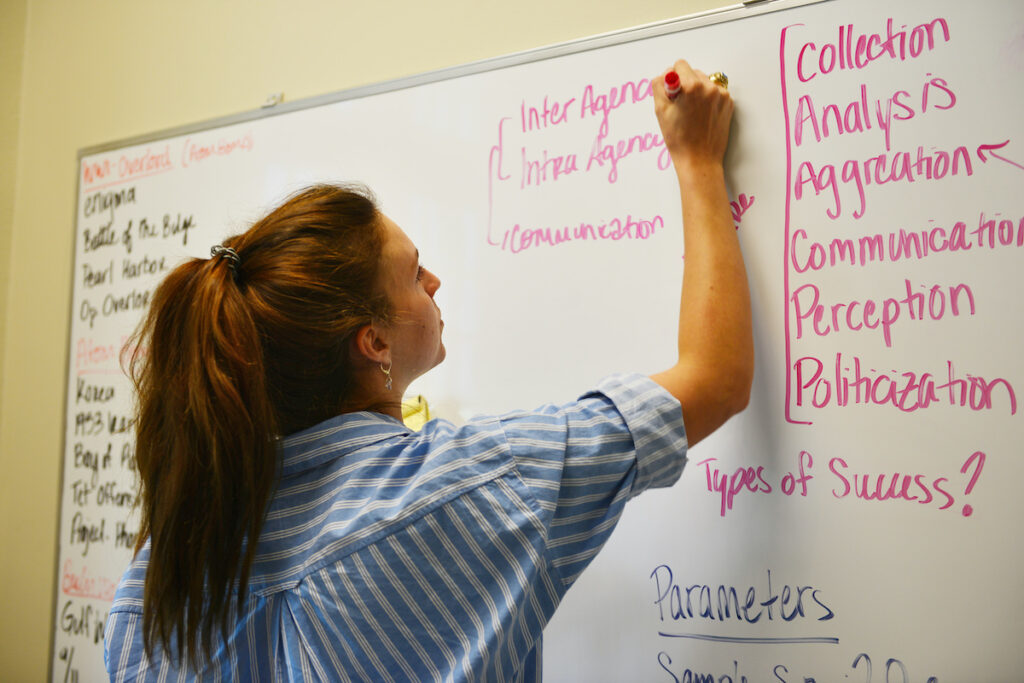 WWII - Overlord (Atom Bomb)
enigma
Battle of the Bulge
Pearl Harbor
Op Overlor
Atom
Korea
1953
Bay of
Tet Offen
Project
Gulf W
9/11
Inter Agenc
Intra Agency
Communication
Collection
Analysis
Aggreation
Communication
Perception
Politicization
Types of Success?
Parameters
Sample